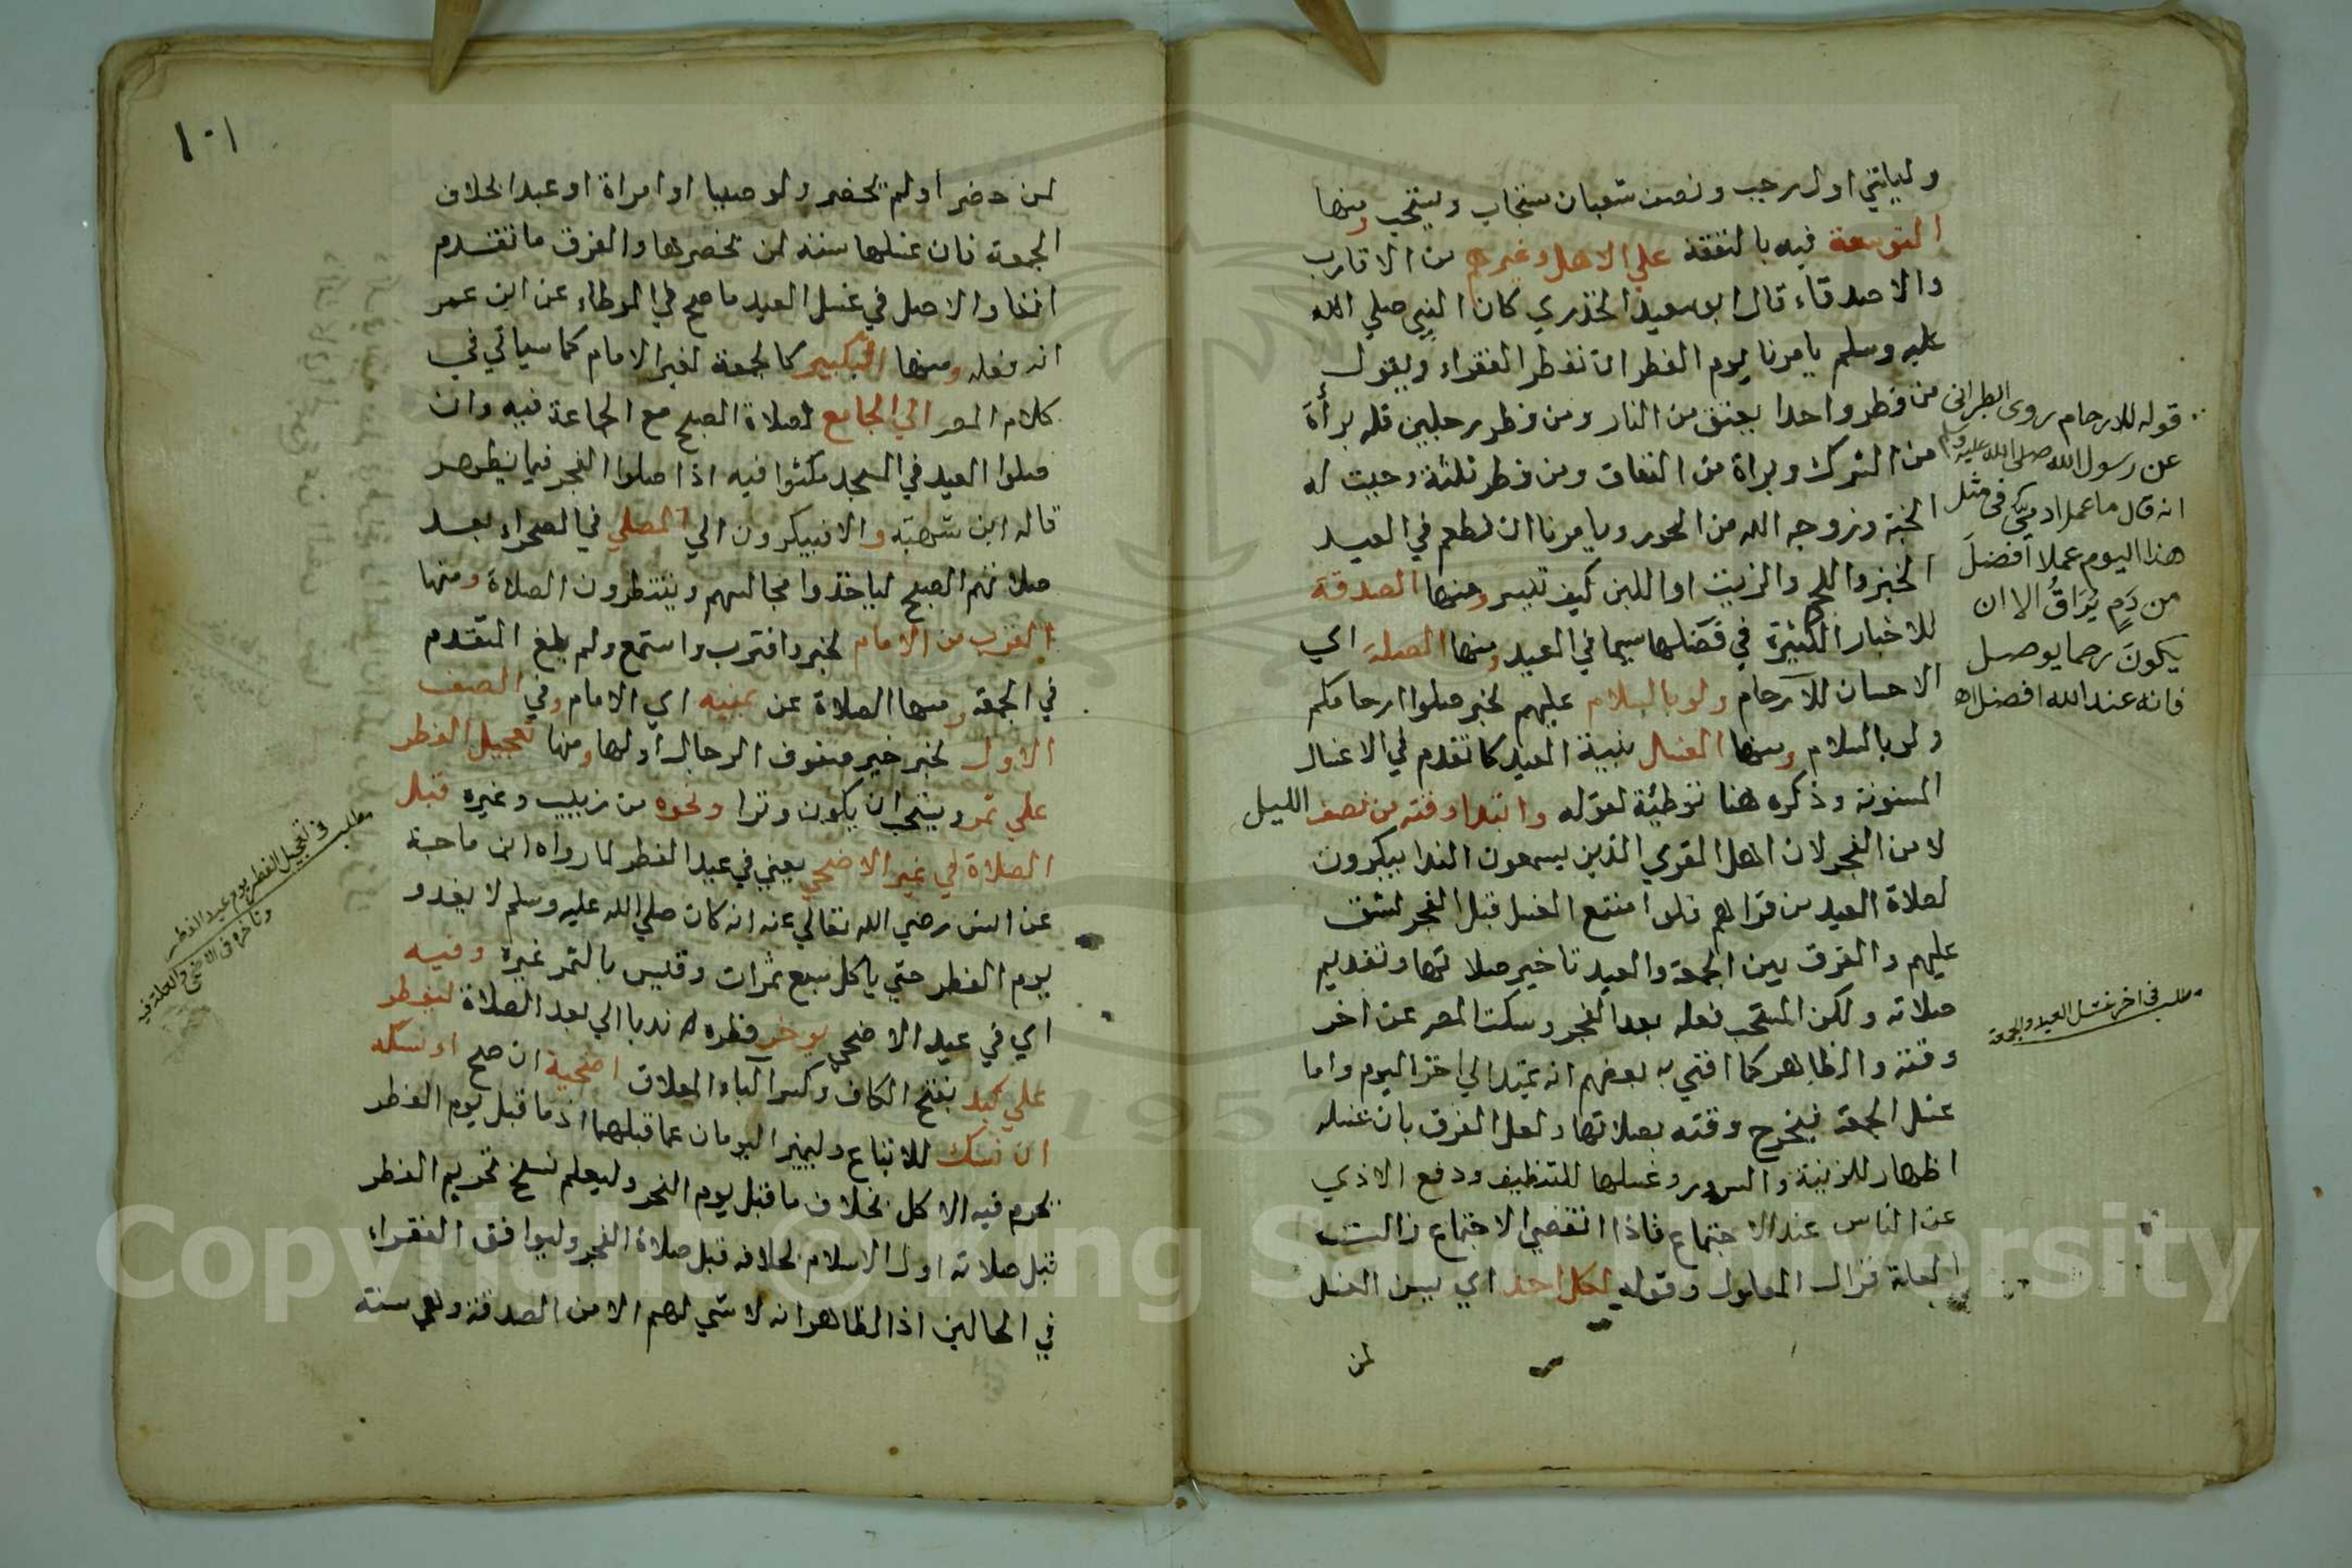 وليلتي اول رجب ونصف شعبان ستجاب ويستحب ومنها
التوسعة فيه بالنفقة علي الاهل وغيرهم من الاقارب
والاصدقاء قال ابو سعيد الخدري كان النبي صلي الله
عليه وسلم يامرنا يوم الفطر ان نفطر الفقراء ويقول
من فطر واحدا يعتق من النار ومن فطر رجلين فله برأة
من الشرك وبراة من النفاق ومن فطر ثلثة وجبت له
الجنة وزوجه الله من الحور ويامرنا ان نطعم في العيد
الخبز واللحم والزيت او اللبن كيف تيسر ومنها الصدقة
للاخبار الكثيرة في فضلها سيما في العيد ومنها الصلة اي
الاحسان للارحام ولو بالسلام عليهم لخبر صلوا ارحامكم
ولو بالسلام ومنها الغسل بنية العيد كما تقدم في الاغسال
المسنونة وذكره هنا توطئة لقوله وابتدا وقته من نصف الليل
لا من الفجر لان اهل القري الذين يسمعون الندا يبكرون
لصلاة العيد من قراهم فلو امتنع الغسل قبل الفجر لشق
عليهم والفرق بين الجمعة والعيد تاخير صلاتها وتقديم
صلاته ولكن المستحب فعله بعد الفجر وسكت المص عن اخر
وقته والظاهر كما افتي به بعضهم انه يمتد الي اخر اليوم واما
غسل الجمعة فيخرج وقته بصلاتها ولعل الفرق بان غسله
اظهار للزينة والسرور وغسلها للتنظيف ودفع الاذي
عن الناس عند الاجتماع فاذا انقضي الاجتماع زالت
العلة فزال المعلول وقوله لكل احد اي يسن الغسل
لمن
قوله للارحام روى الطبرانى
عن رسول الله صلى الله عليه وسلم
انه قال ما عمل ادمي فى مثل
هذا اليوم عملا افضل
من دم يراق الا ان
يكون رحما يوصل
فانه عند الله افضل اه
مطلب فى اخر غسل العيد والجمعة
١٠١
لمن حضر او لم يحضر ولو صبيا او امراة او عبدا بخلاف
الجمعة فان غسلها سنة لمن يحضرها والفرق ما تقدم
انفا والاصل في غسل العيد ما صح في الموطاء عن ابن عمر
انه فعله ومنها التبكير كالجمعة لغير الامام كما سياتي في
كلام المص الي الجامع لصلاة الصبح مع الجماعة فيه وان
صلوا العيد في المسجد مكثوا فيه اذا صلوا الفجر فيما يظهر
قاله ابن شهبة والا فيبكرون الي المصلي في الصحراء بعد
صلاتهم الصبح لياخذوا مجالسهم وينتظرون الصلاة ومنها
القرب من الامام لخبر واقترب واستمع ولم يلغ المتقدم
في الجمعة ومنها الصلاة عن يمينه اي الامام وفي الصف
الاول لخبر خير صفوف الرجال اولها ومنها تعجيل الفطر
علي تمر ويستحب ان يكون وترا ونحوه من زبيب وغيره قبل
الصلاة في غير الاضحي يعني في عيد الفطر لما رواه ابن ماجة
عن انس رضي الله تعالي عنه انه كان صلي الله عليه وسلم لا يغدو
يوم الفطر حتي ياكل سبع تمرات وقيس بالتمر غيره وفيه
اي في عيد الاضحي يوخر فطره ندبا الي بعد الصلاة ليفطر
علي كبد بفتح الكاف وكسر الباء المعلاق اضحية ان صح او نسكه
ان نسك للاتباع وليميز اليومان عما قبلهما اذ ما قبل يوم الفطر
يحرم فيه الاكل بخلاف ما قبل يوم النحر وليعلم نسخ تحريم الفطر
قبل صلاته اول الاسلام بخلافه قبل صلاة الفجر وليوافق الفقراء
في الحالين اذ الظاهر انه لا شي لهم الا من الصدقة وهي سنة
مطلب فى تعجيل الفطر يوم عيد الفطر
وتاخره فى الاضحى والعلة فيه
Copyright © King Saud University
1957